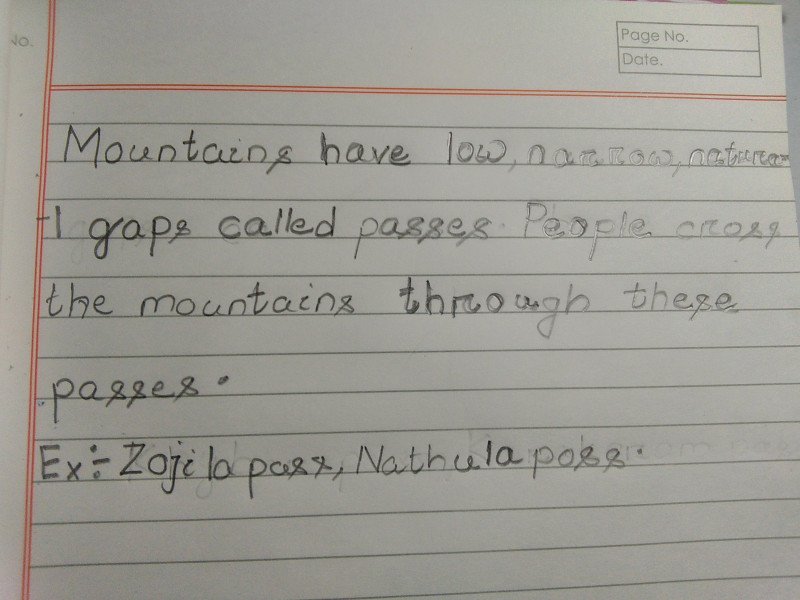 No.
Page No.
Date.
Mountains have low, narrow, natura-
-l gaps called passes. People cross
the mountains through these
passes.
Ex:- Zojila pass, Nathula poss.